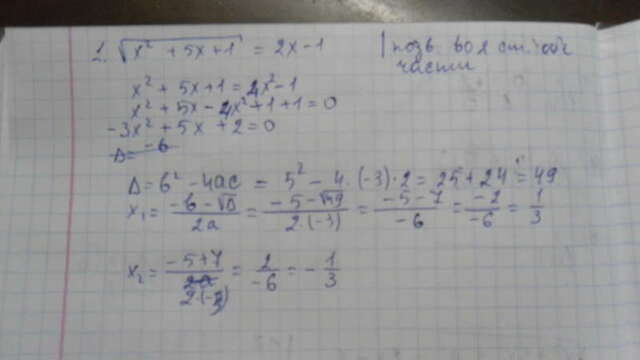 1. √(x² + 5x + 1) = 2x - 1 | позв. во II ст. обе
части
x² + 5x + 1 = 4x² - 1
x² + 5x - 4x² + 1 + 1 = 0
-3x² + 5x + 2 = 0
Δ = -6
Δ = b² - 4ac = 5² - 4 · (-3) · 2 = 25 + 24 = 49
x₁ = (-b - √Δ)/(2a) = (-5 - √49)/(2 · (-3)) = (-5 - 7)/(-6) = (-2)/(-6) = 1/3
x₂ = (-5 + 7)/(2 · (-3)) = 2/(-6) = - 1/3